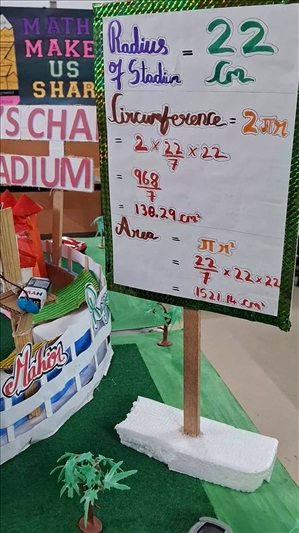 MATH
MAKE
US
SHAR
'S CHA
ADIUM
Radius = 22
Of Stadium cm
Circumference = 2πr
= 2 × 22/7 × 22
= 968/7
= 138.29 cm²
Area = πr²
= 22/7 × 22 × 22
= 1521.14 cm²
Mahor